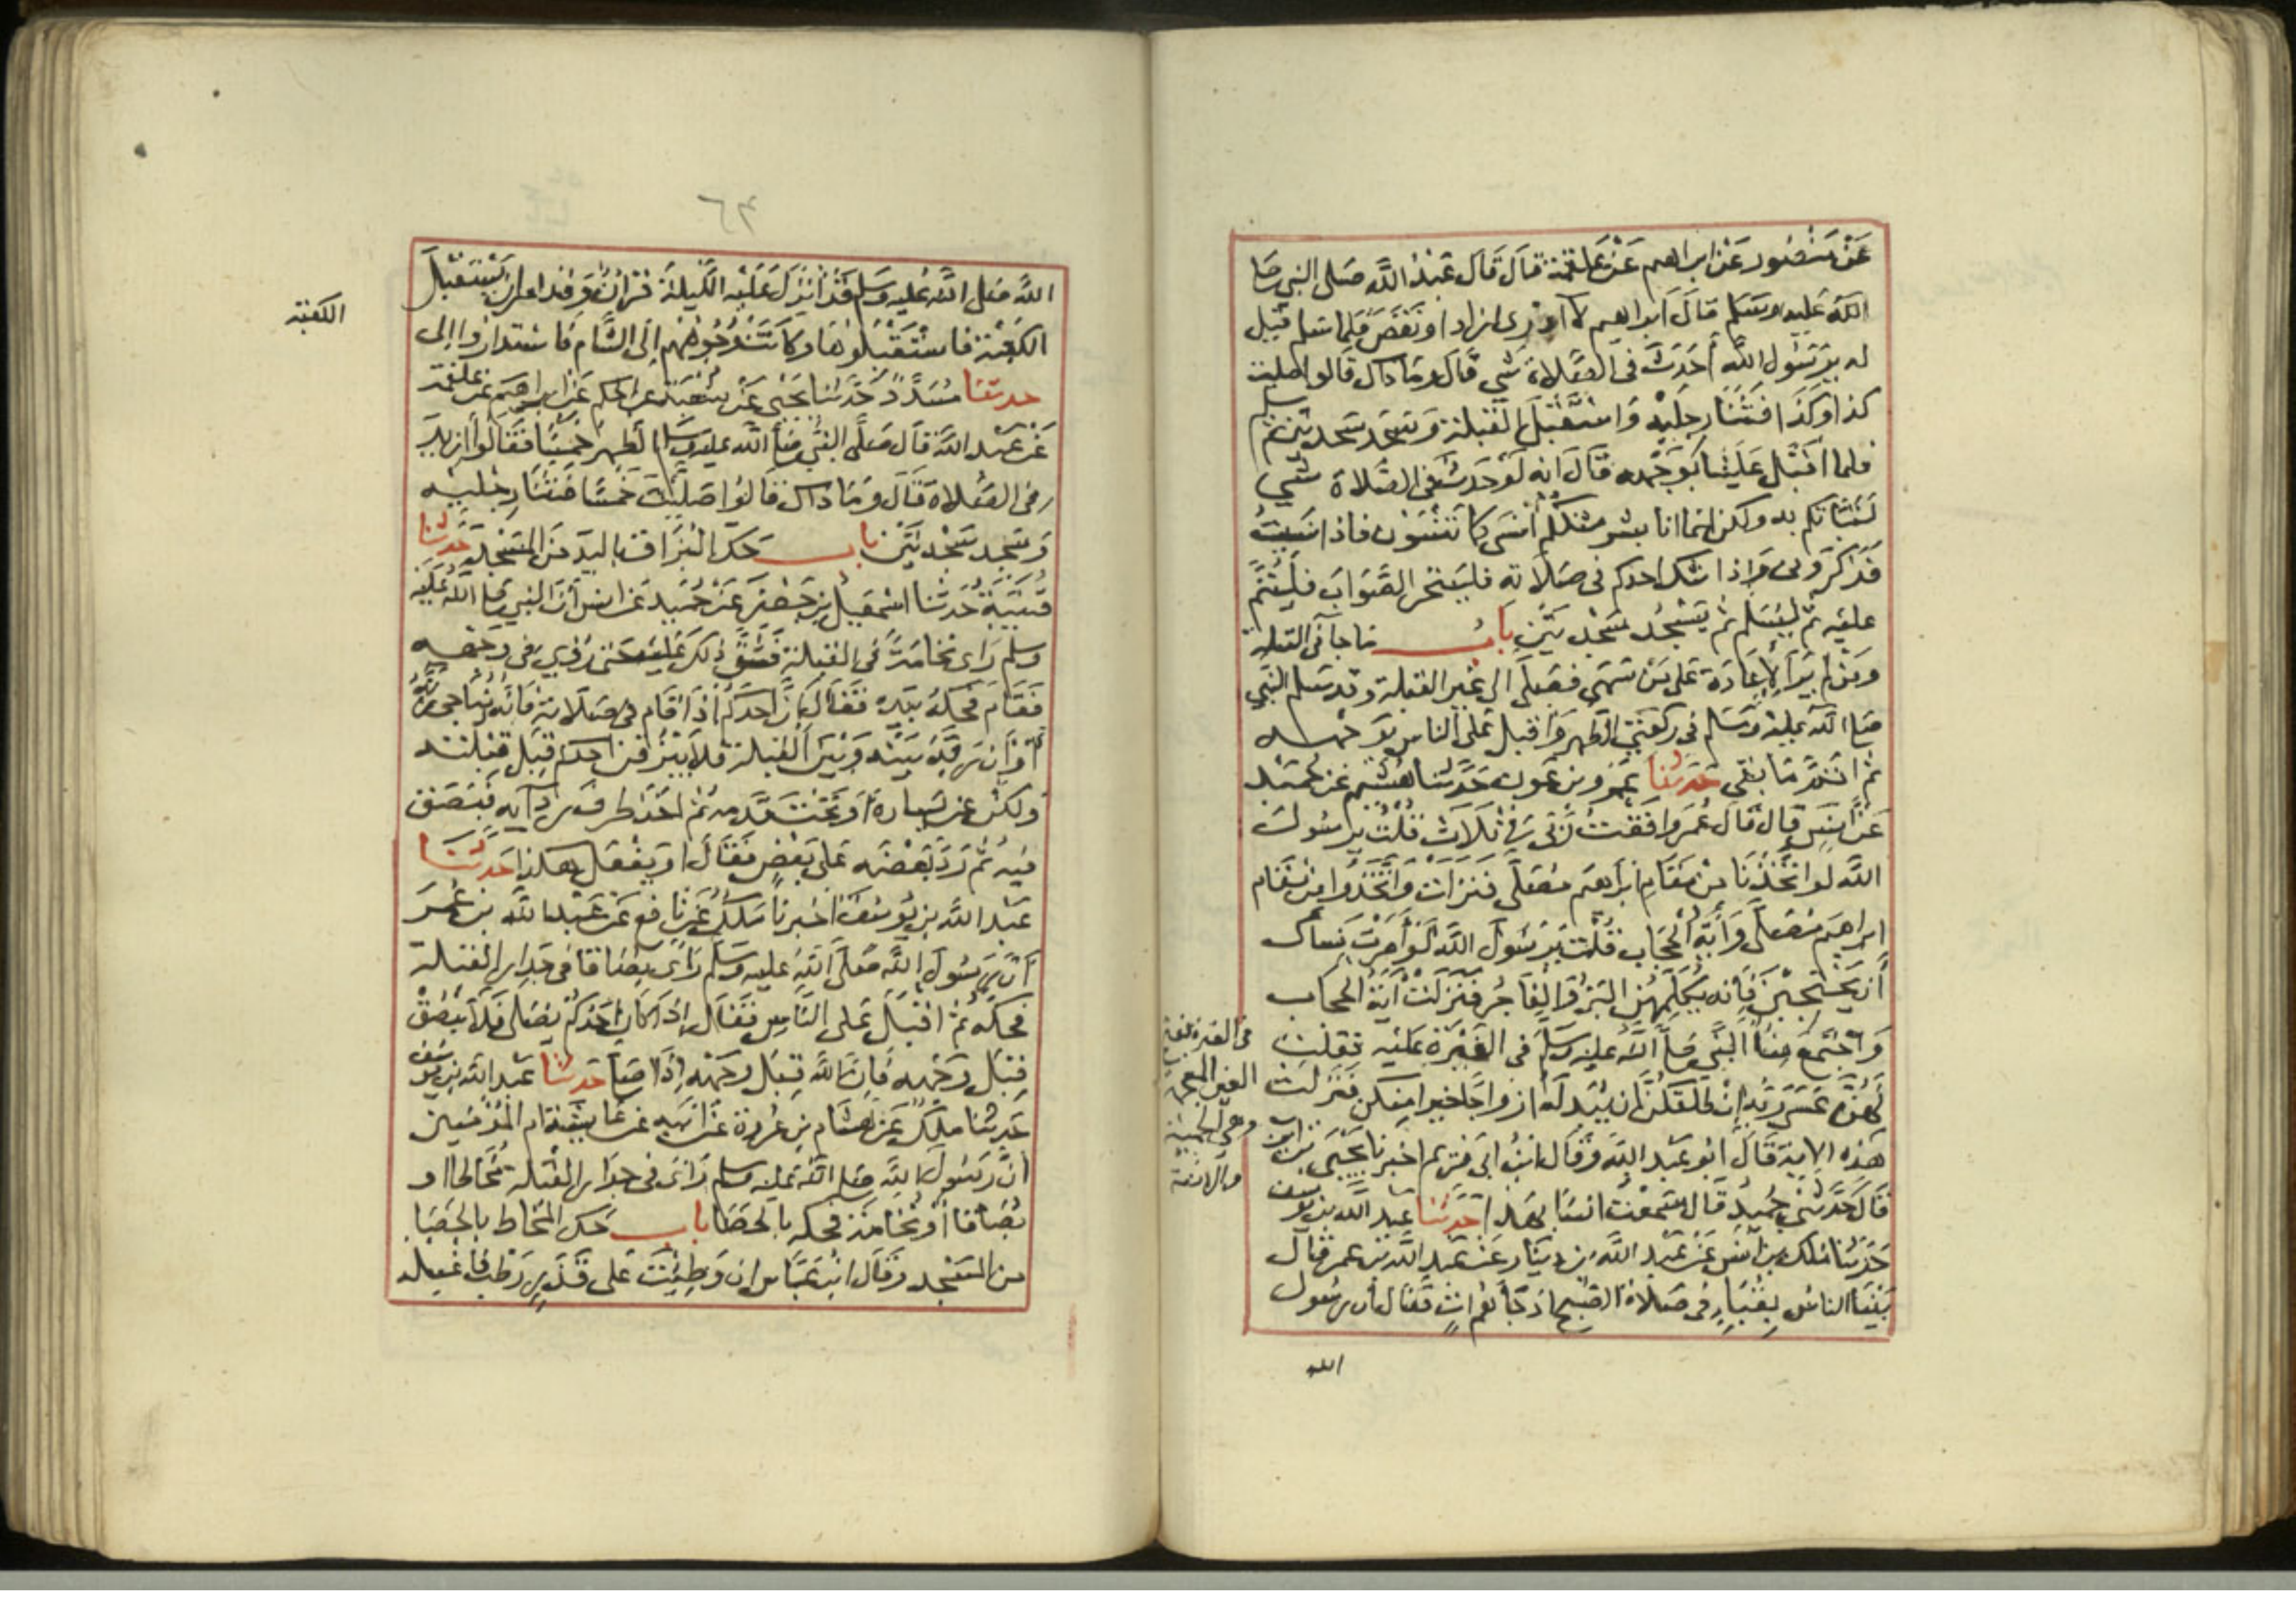 عَنْ مَنْصُور عَنْ ابراهيم عَنْ عَلقمة قالَ قَالَ عَبْدُ الله صَلى النبي صَلى
الله عَليه وسَلم قالَ ابراهيم لا ادري ازاد او نَقَصَ فلما سَلم قيل
له يرَسُول الله أحَدَثَ في الصَّلاة شي قالَ وما ذاك قالوا صليت
كذا وكذا فَثَنا رجلَيْه وَاسْتَقْبَلَ القبلة وسَجَد سَجدتين ثم سلم
فلما أقْبَل عَلينا بوَجْهه قالَ انه لَوْ حَدث في الصَّلاة شي
لنَبَّأتكم به ولكن انما انا بشر مثلكم أنسَى كما تَنْسَوْن فاذا نسَيتُ
فَذَكروني وَاذا شك احدكم في صَلاته فليتحر الصَّوَابَ فليُتمَّ
عليه ثم ليُسَلم ثم يَسْجُد سَجْدتَيْن بابُ مَا جا في القبلة
وَمَنْ لم يَرَ الاعَادَة عَلى مَنْ سَهَى فصَلى الى غير القبلة وقد سَلم النبي
صَلى الله عليه وسَلم في ركعَتي الظهر وَأقبل عَلى الناس بوَجهه
ثم اتمَّ مَا بقي حَدثنا عَمرو بن عَون حَدَّثنا هُشَيْم عَنْ حُمَيْد
عَنْ انَس قال قال عُمَر وافقْتُ رَبّي في ثلاث قُلْت يرسُول
الله لو اتخَذْنا من مَقَام ابْرَاهيم مُصَلى فنزلت واتَّخذوا من مقام
ابراهيم مُصَلى وَآيَة الحجَاب قُلْت يَرسُول الله لَوْ أمَرْت نِسَاك
أن يَحْتَجبْنَ فَإنه يكلمهُنَّ البَرُّ وَالفَاجرُ فنزلَتْ آيَةُ الحجاب
وَاجْتَمعَ نِسَاءُ النَّبي صَلى الله عليْه وسَلم في الغَيْرَة عَليه فقلت
لَهُنَّ عَسَى رَبُّه ان طَلَّقَكُنَّ ان يُبَدِلَهُ أزواجًا خيرا منكن فنزلت
هَذه الاية قَال ابُو عَبْد الله وَقَال ابنُ ابى مَرْيَم اخبرنا يَحْيَى بن ايوب
قال حَدَّثني حُمَيد قال سَمعْتُ انسًا بهَذا حَدثنا عَبد الله بن يوسف
حَدَّثنا مَلك بن أنس عَنْ عَبْد الله بن دينار عَنْ عَبد الله بن عمر قال
بَيْنا الناسُ بقُبَاءٍ في صَلاة الصُّبح اذ جَاءهُم اتٍ فقال ان رسُول
في الغيرة بفتح
الغين المعجمة
وهي الحمية
والانفة
الله
٦٣
الله صَلى الله عَليه وسَلم قَدْ أنْزلَ عَلَيْه اللَّيلة قرْانٌ وَقد امر ان يَسْتَقْبلَ
الكَعْبَة فاستَقْبلُوهَا وكانَتْ وُجُوهُهم إلى الشَّام فاسْتداروا إلى
الكعبة
حدثنا مُسَدَّدٌ حَدَّثنا يَحْيَى عَنْ شعْبَة عن الحكم عَنْ ابراهيم عن علقمة
عَنْ عَبْد الله قال صَلَّى النبي صَلى الله عليه وسلم الظهر خمسًا فقالوا أزيد
في الصَّلاة قال ومَا ذاك قالوُا صَليْتَ خَمْسًا فثَنَا رجليْه
وَسَجد سَجْدتَيْن باب حَك البُزَاق باليد من المَسْجد حَدثنا
قتيبَة حَدثنا اسْمعيل بن جَعْفر عَنْ حُمَيد عن انس أن النبي صَلى الله عَليه
وسلم رَاى نُخامةً في القبلة فَشَقَّ ذلكَ عَليْه حَتى رُؤِي في وَجْهه
فقَامَ فحَكهُ بيَده فقال إن أحَدكُمْ اذَا قام في صَلاته فإنَّه يُنَاجي رَبَّهُ
أوْ انَّ رَبَّهُ بَيْنَه وَبَيْنَ القبلة فلا يَبْزُقن احدكم قِبَل قبْلته
ولكن عن يَسَاره أوْ تَحْت قَدَمه ثم اخَذ طرف رِدَآيه فبَصَق
فيه ثم رَدَّ بَعْضَه عَلى بَعْضٍ فقال او يَفْعَل هَكذا حَدثنا
عَبْد الله بن يوسُفَ اخبرنا مَلكٌ عَنْ نافع عَنْ عَبْد الله بن عُمَر
أنَّ رَسُول الله صَلى الله عَليه وسَلم رَاى بُصَاقا في جدار القبْلة
فحَكه ثم اقبَل عَلى الناس فقال إذا كان احَدُكم يُصَلي فَلا يَبْصُقْ
قِبَل وَجْهه فَانَّ الله قِبَل وَجْهه إذَا صَلى حَدثنا عَبد الله بن يوسف
حَدثنا مَلكٌ عَن هشَام بن عُرْوَة عَنْ أبيه عَن عَايشة ام المُؤمنين
انَّ رَسُول الله صَلى الله عَليه وسلم رَاى في جدَار القبْلة مُخَاطًا او
بُصَاقا أوْ نُخامةً فحكه بالحصَا باب حَك المخَاط بالحَصَا
من المَسْجد وَقال ابْنُ عبَّاس ان وَطِئْتَ عَلى قَذَرٍ رَطْبٍ فَاغسله